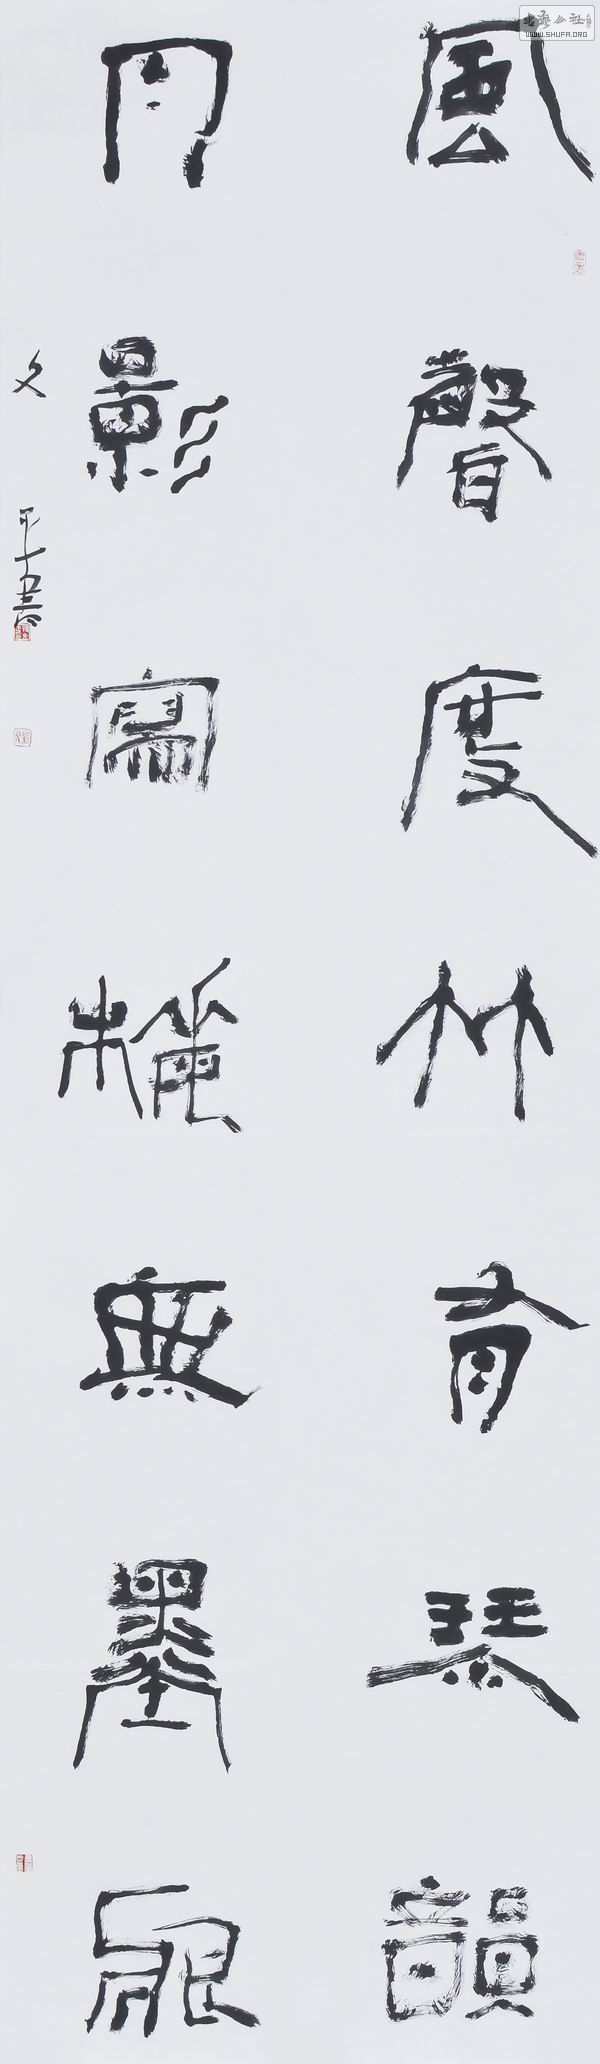 風聲度竹有琴韻
月影寫梅無墨痕
文平書
書法公社
WWW.SHUFA.ORG